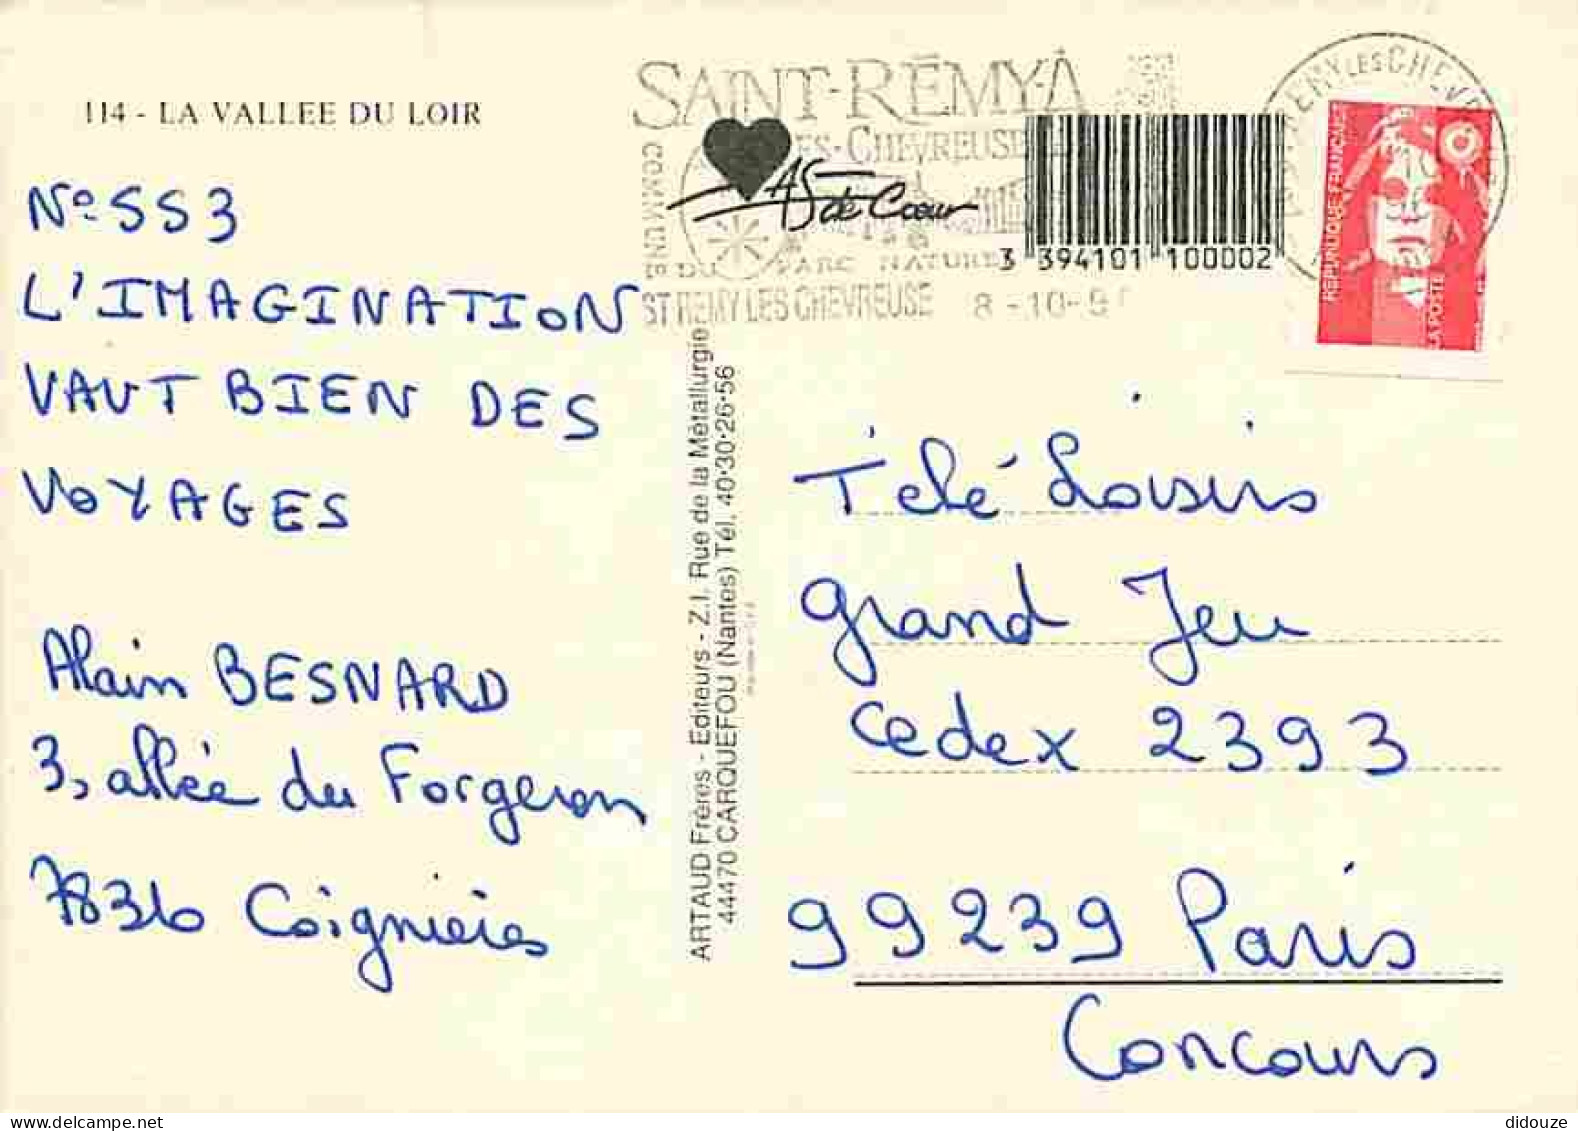 114 - LA VALLEE DU LOIR
N° SS3
L'IMAGINATION
VAUT BIEN DES
VOYAGES
Alain BESNARD
3, allée du Forgeron
78310 Coignières
SAINT-RÉMY-
LES-CHEVREUSE
COMMUNE DU PARC NATUREL
ST REMY LES CHEVREUSE 8 -10- 9
AS de Cœur
3 394101 100002
REMY LES CHEVR
REPUBLIQUE FRANÇAISE
LA POSTE
ARTAUD Frères - Editeurs - Z.I. Rue de la Métallurgie
44470 CARQUEFOU (Nantes) Tél. 40·30·26·56
Télé Loisirs
grand Jeu
Cedex 2393
99239 Paris
Concours
didouze